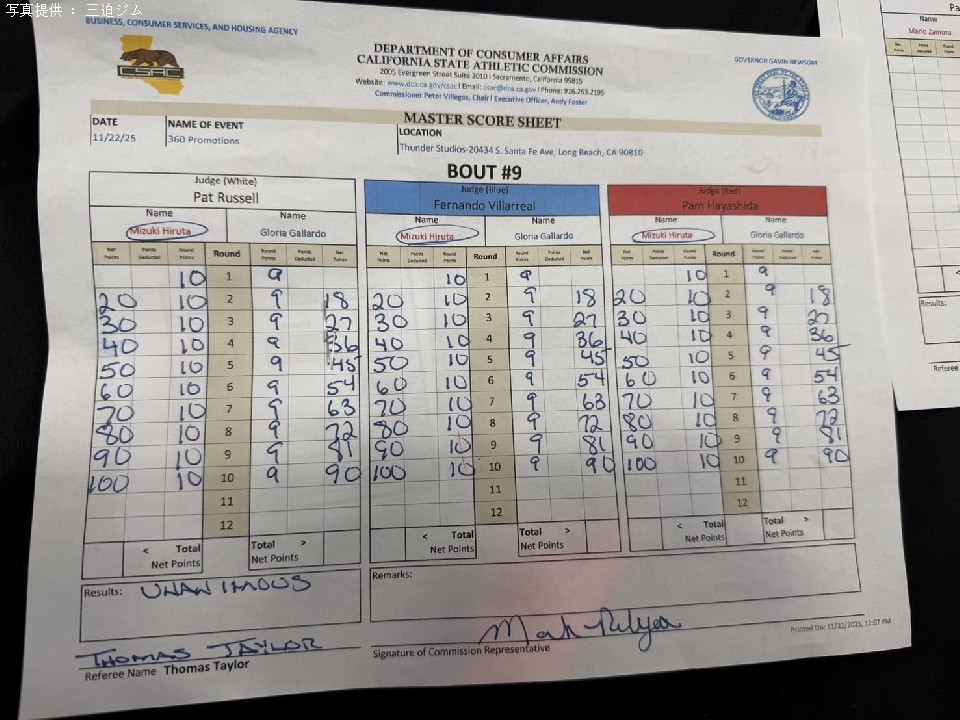 写真提供 : 三迫ジム
BUSINESS, CONSUMER SERVICES, AND HOUSING AGENCY
CSAC
DEPARTMENT OF CONSUMER AFFAIRS
CALIFORNIA STATE ATHLETIC COMMISSION
2005 Evergreen Street Suite 2010 | Sacramento, California 95815
Website: www.dca.ca.gov/csac | Email: csac@dca.ca.gov | Phone: 916.263.2195
Commissioner Peter Villegas, Chair | Executive Officer, Andy Foster
GOVERNOR GAVIN NEWSOM
MASTER SCORE SHEET
DATE NAME OF EVENT LOCATION
11/22/25 360 Promotions Thunder Studios-20434 S. Santa Fe Ave, Long Beach, CA 90810
BOUT #9
Judge (White) Judge (Blue) Judge (Red)
Pat Russell Fernando Villarreal Pam Hayashida
Name Name Name Name Name Name
Mizuki Hiruta Gloria Gallardo Mizuki Hiruta Gloria Gallardo Mizuki Hiruta Gloria Gallardo
Net Points Points Deducted Round Points Round Round Points Points Deducted Net Points Net Points Points Deducted Round Points Round Round Points Points Deducted Net Points Net Points Points Deducted Round Points Round Round Points Points Deducted Net Points
10 1 9 10 1 9 10 1 9
20 10 2 9 18 20 10 2 9 18 20 10 2 9 18
30 10 3 9 27 30 10 3 9 27 30 10 3 9 27
40 10 4 9 36 40 10 4 9 36 40 10 4 9 36
50 10 5 9 45 50 10 5 9 45 50 10 5 9 45
60 10 6 9 54 60 10 6 9 54 60 10 6 9 54
70 10 7 9 63 70 10 7 9 63 70 10 7 9 63
80 10 8 9 72 80 10 8 9 72 80 10 8 9 72
90 10 9 9 81 90 10 9 9 81 90 10 9 9 81
100 10 10 9 90 100 10 10 9 90 100 10 10 9 90
11 11 11
12 12 12
< Total Total > < Total Total > < Total Total >
Net Points Net Points Net Points Net Points Net Points Net Points
Results: UNANIMOUS
Remarks:
THOMAS TAYLOR
Referee Name Thomas Taylor
Signature of Commission Representative
Printed On: 11/22/2025, 12:07 PM
Name
Mario Zamora
Net Points Points Deducted Round Points
Results:
Referee